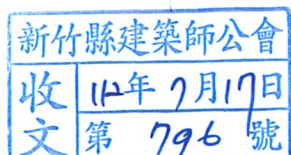 新竹縣建築師公會
收文
112年7月17日
第796號